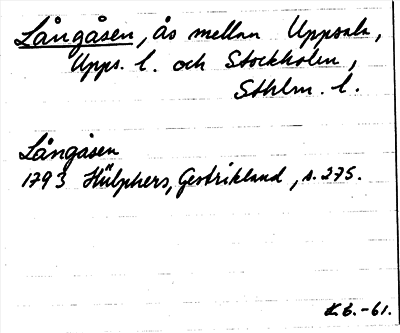 Långåsen, ås mellan Uppsala,
Upps. l. och Stockholm,
Sthlm. l.
Långåsen
1793 Hülphers, Gestrikland, s. 275.
L.B.-61.